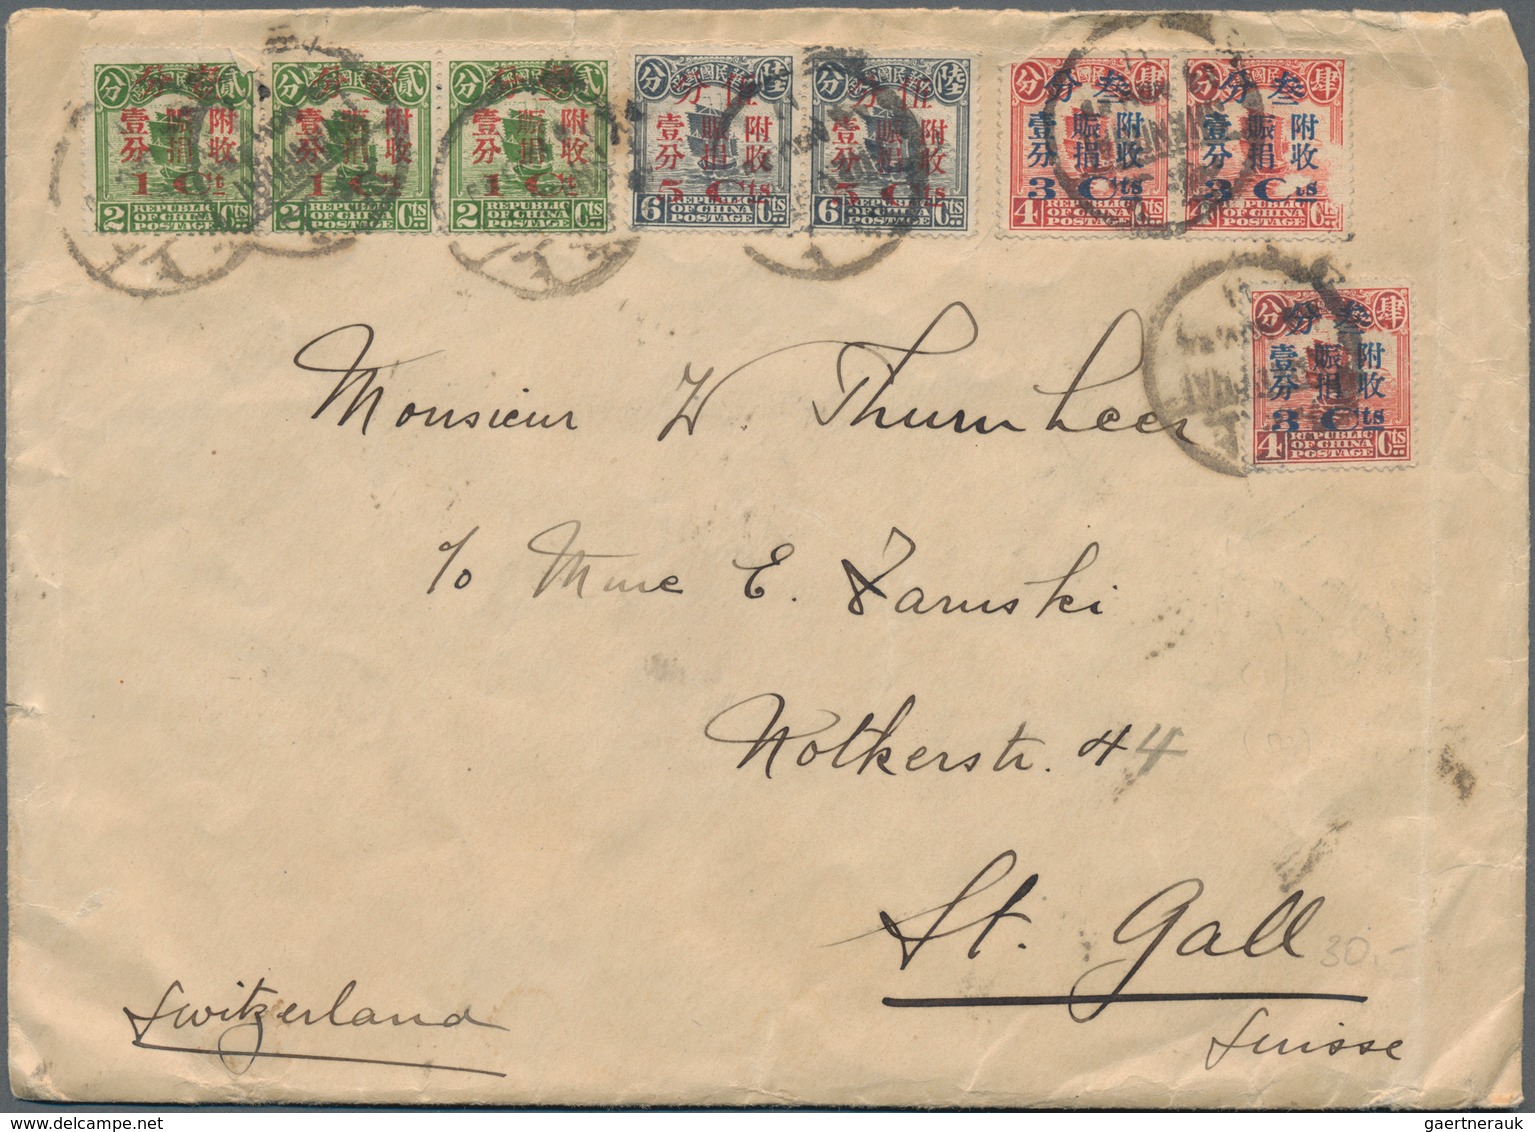 分 壹 分 壹 分 壹 分 伍 分 伍 分 叁 分 叁
附收 賑捐 壹分 附收 賑捐 壹分 附收 賑捐 壹分 附收 賑捐 壹分 附收 賑捐 壹分 附收 賑捐 壹分 附收 賑捐 壹分
1 Ct 1 Ct 1 Ct 5 Cts 5 Cts 3 Cts 3 Cts
2 REPUBLIC OF CHINA POSTAGE Cts 2 REPUBLIC OF CHINA POSTAGE Cts 2 REPUBLIC OF CHINA POSTAGE Cts 6 REPUBLIC OF CHINA POSTAGE Cts 6 REPUBLIC OF CHINA POSTAGE Cts 4 REPUBLIC OF CHINA POSTAGE Cts REPUBLIC OF CHINA POSTAGE Cts
分 肆
分 叁
附收 賑捐 壹分
3 Cts
4 REPUBLIC OF CHINA POSTAGE Cts
Monsieur W Thurnheer
c/o Mme E. Zaruski
Notkerstr. 44
St. Gall
30.-
Switzerland
Suisse
gaertnerauk